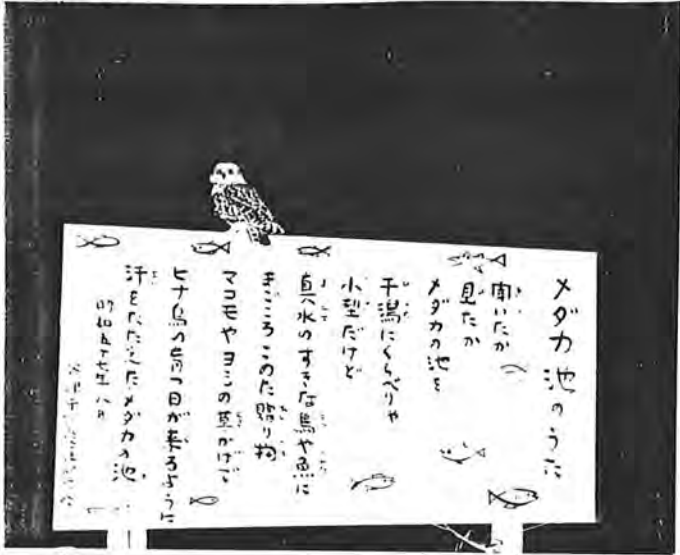 メダカ池のうた
聞いたか
見たか
メダカの池を
干潟にくらべりゃ
小型だけど
真水のすきな鳥や魚に
まごころこめた贈り物
マコモやヨシの草かげで
ヒナ鳥の育つ日が来るように
汗をたたえたメダカの池
昭和五十七年八月